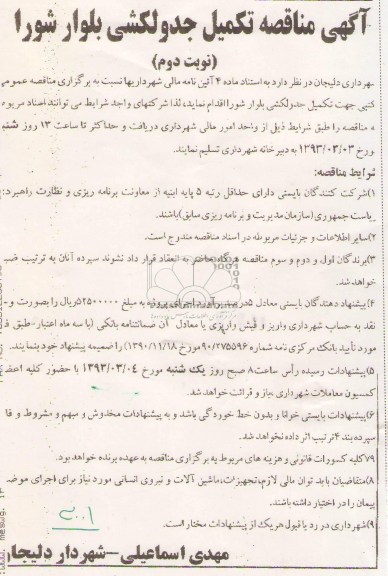 آگهی مناقصه تکمیل جدولکشی بلوار شورا
(نوبت دوم)
شهرداری دلیجان در نظر دارد به استناد ماده ۴ آئین نامه مالی شهرداریها نسبت به برگزاری مناقصه عمومی
کتبی جهت تکمیل جدولکشی بلوار شورا اقدام نماید، لذا شرکتهای واجد شرایط می توانند اسناد مربوط
به مناقصه را طبق شرایط ذیل از واحد امور مالی شهرداری دریافت و حداکثر تا ساعت ۱۳ روز شنبه
مورخ ۱۳۹۳/۰۳/۰۳ به دبیرخانه شهرداری تسلیم نمایند.
شرایط مناقصه:
۱)شرکت کنندگان بایستی دارای حداقل رتبه ۵ پایه ابنیه از معاونت برنامه ریزی و نظارت راهبردی
ریاست جمهوری(سازمان مدیریت و برنامه ریزی سابق)باشند.
۲)سایر اطلاعات و جزئیات مربوطه در اسناد مناقصه مندرج است.
۳)برندگان اول و دوم و سوم مناقصه هرگاه حاضر به انعقاد قرار داد نشوند سپرده آنان به ترتیب ضبط
خواهد شد.
۴)پیشنهاد دهندگان بایستی معادل ۵درصد برآورد اجرای پروژه به مبلغ ۵۲۵۰۰۰۰۰ریال را بصورت وجه
نقد به حساب شهرداری واریز و فیش واریزی یا معادل آن ضمانتنامه بانکی (با سه ماه اعتبار-طبق فرم
مورد تأیید بانک مرکزی نامه شماره ۹۰/۲۷۵۵۹۶مورخ ۱۳۹۰/۱۱/۱۸) را ضمیمه پیشنهاد خود بنمایند.
۵)پیشنهادات رسیده رأس ساعت۸ صبح روز یک شنبه مورخ ۱۳۹۳/۰۳/۰۴ با حضور کلیه اعضاء
کمسیون معاملات شهرداری باز و قرائت خواهد شد.
۶)پیشنهادات بایستی خوانا و بدون خط خوردگی باشد و به پیشنهادات مخدوش و مبهم و مشروط و فاقد
سپرده بند ۴ ترتیب اثر داده نخواهد شد.
۷)کلیه کسورات قانونی و هزینه های مربوط به برگزاری مناقصه به عهده برنده خواهد بود.
۸)متقاضیان باید توان مالی لازم،تجهیزات،ماشین آلات و نیروی انسانی مورد نیاز برای اجرای موضوع
پیمان را در اختیار داشته باشند.
۹)شهرداری در رد یا قبول هر یک از پیشنهادات مختار است.
مهدی اسماعیلی-شهردار دلیجان